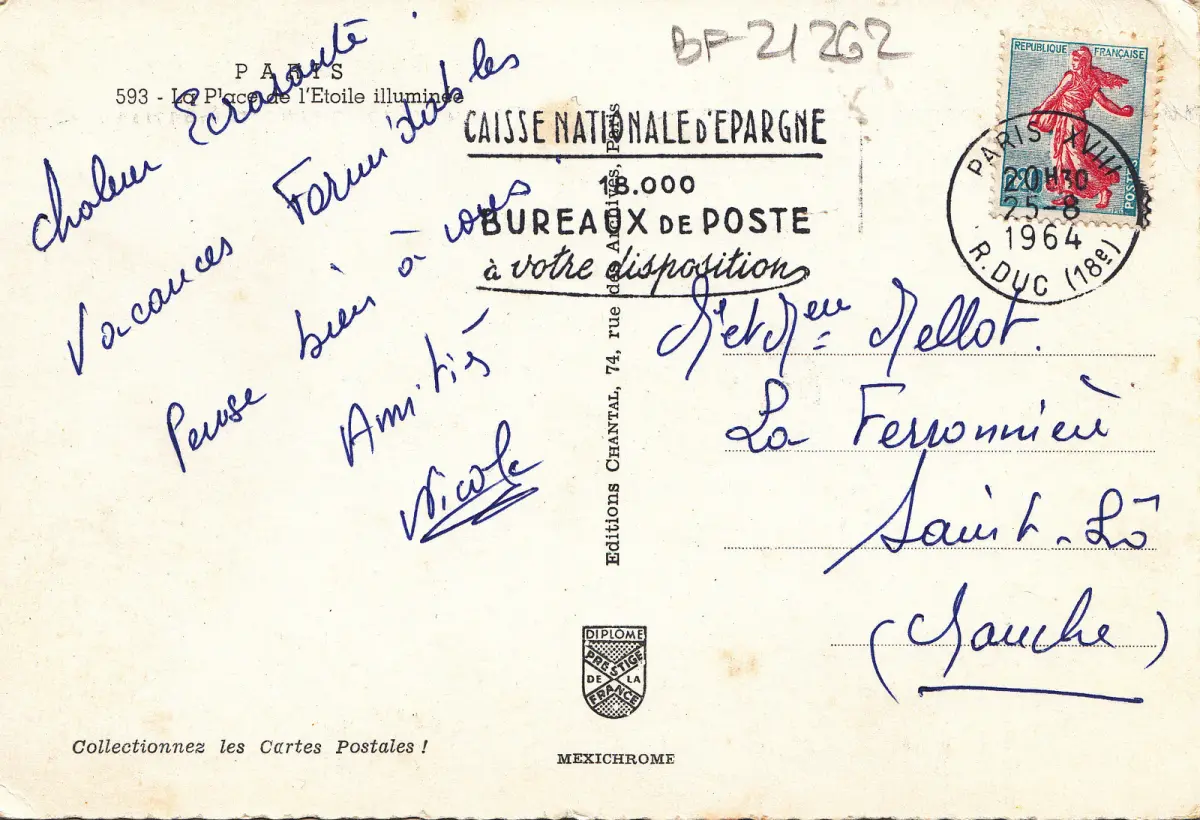 BF 21262
PARIS
593 - La Place de l'Etoile illuminée
chaleur Ecrasante
Vacances Formidables
Pense bien à vous
Amitiés
Nicole
CAISSE NATIONALE D'EPARGNE
18.000
BUREAUX DE POSTE
à votre disposition
REPUBLIQUE FRANÇAISE
POSTES
PARIS XVIII
20H30
25-8
1964
R. DUC (18e)
Editions CHANTAL, 74, rue des Archives, Paris
Mr et Mme Mellot.
La Ferronnière
Saint-Lô
(Manche)
DIPLOME
PRESTIGE
DE LA
FRANCE
Collectionnez les Cartes Postales !
MEXICHROME